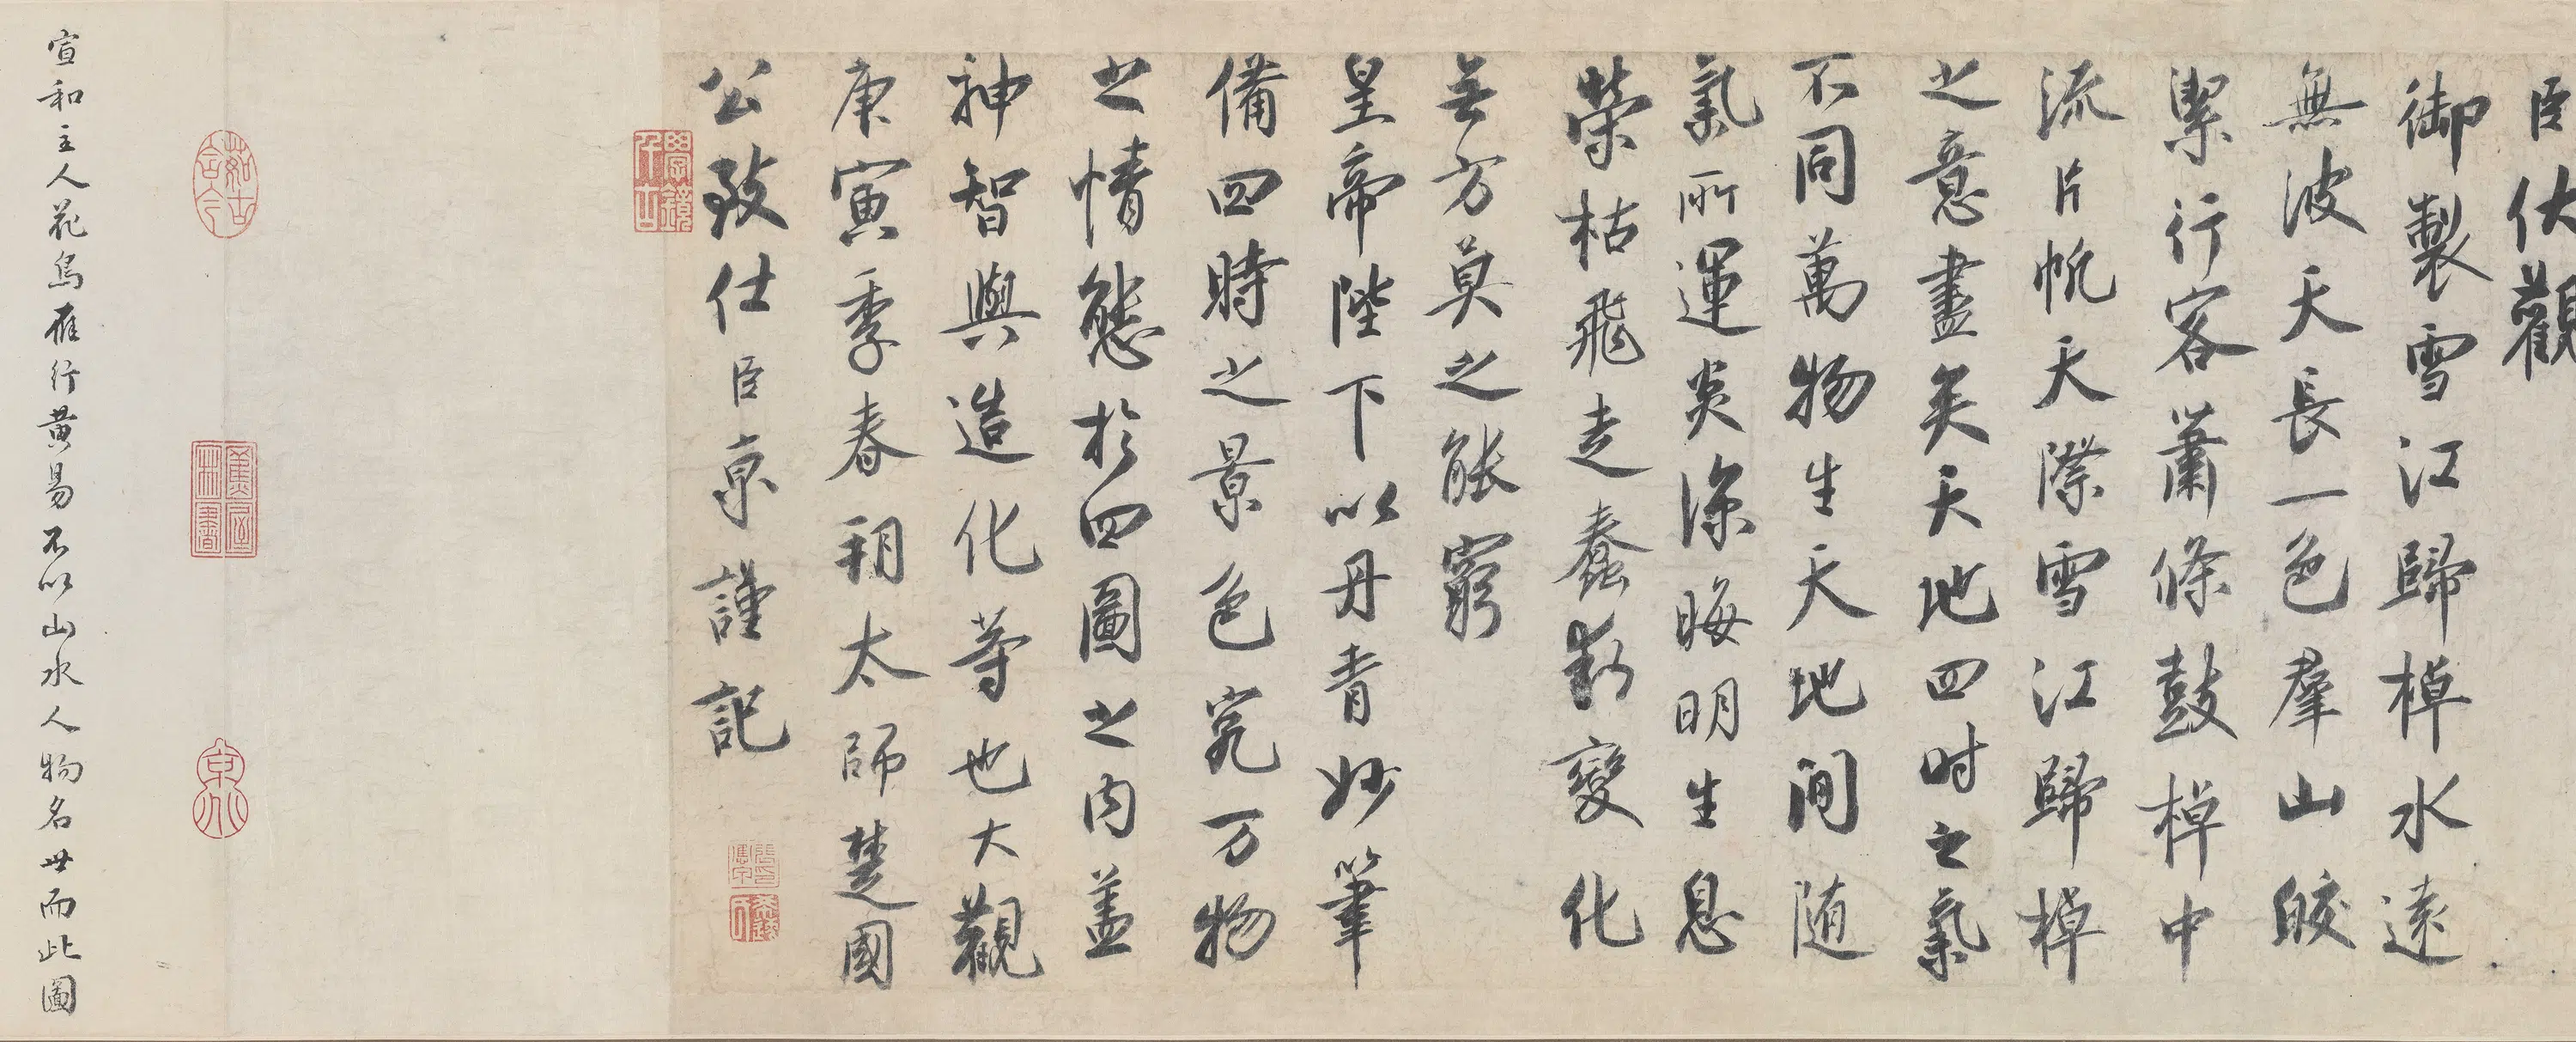 臣伏觀
御製雪江歸棹水遠
無波天長一色群山皎
潔行客蕭條鼓棹中
流片帆天際雪江歸棹
之意盡矣天地四时之氣
不同萬物生天地间随
氣所運炎涼晦明生息
榮枯飛走蠢動變化
无方莫之能窮
皇帝陛下以丹青妙筆
備四時之景色究万物
之情態於四圖之内盖
神智與造化等也大觀
庚寅季春朔太師楚國
公致仕臣京謹記
宣和主人花鳥雁行黄易不以山水人物名世而此圖